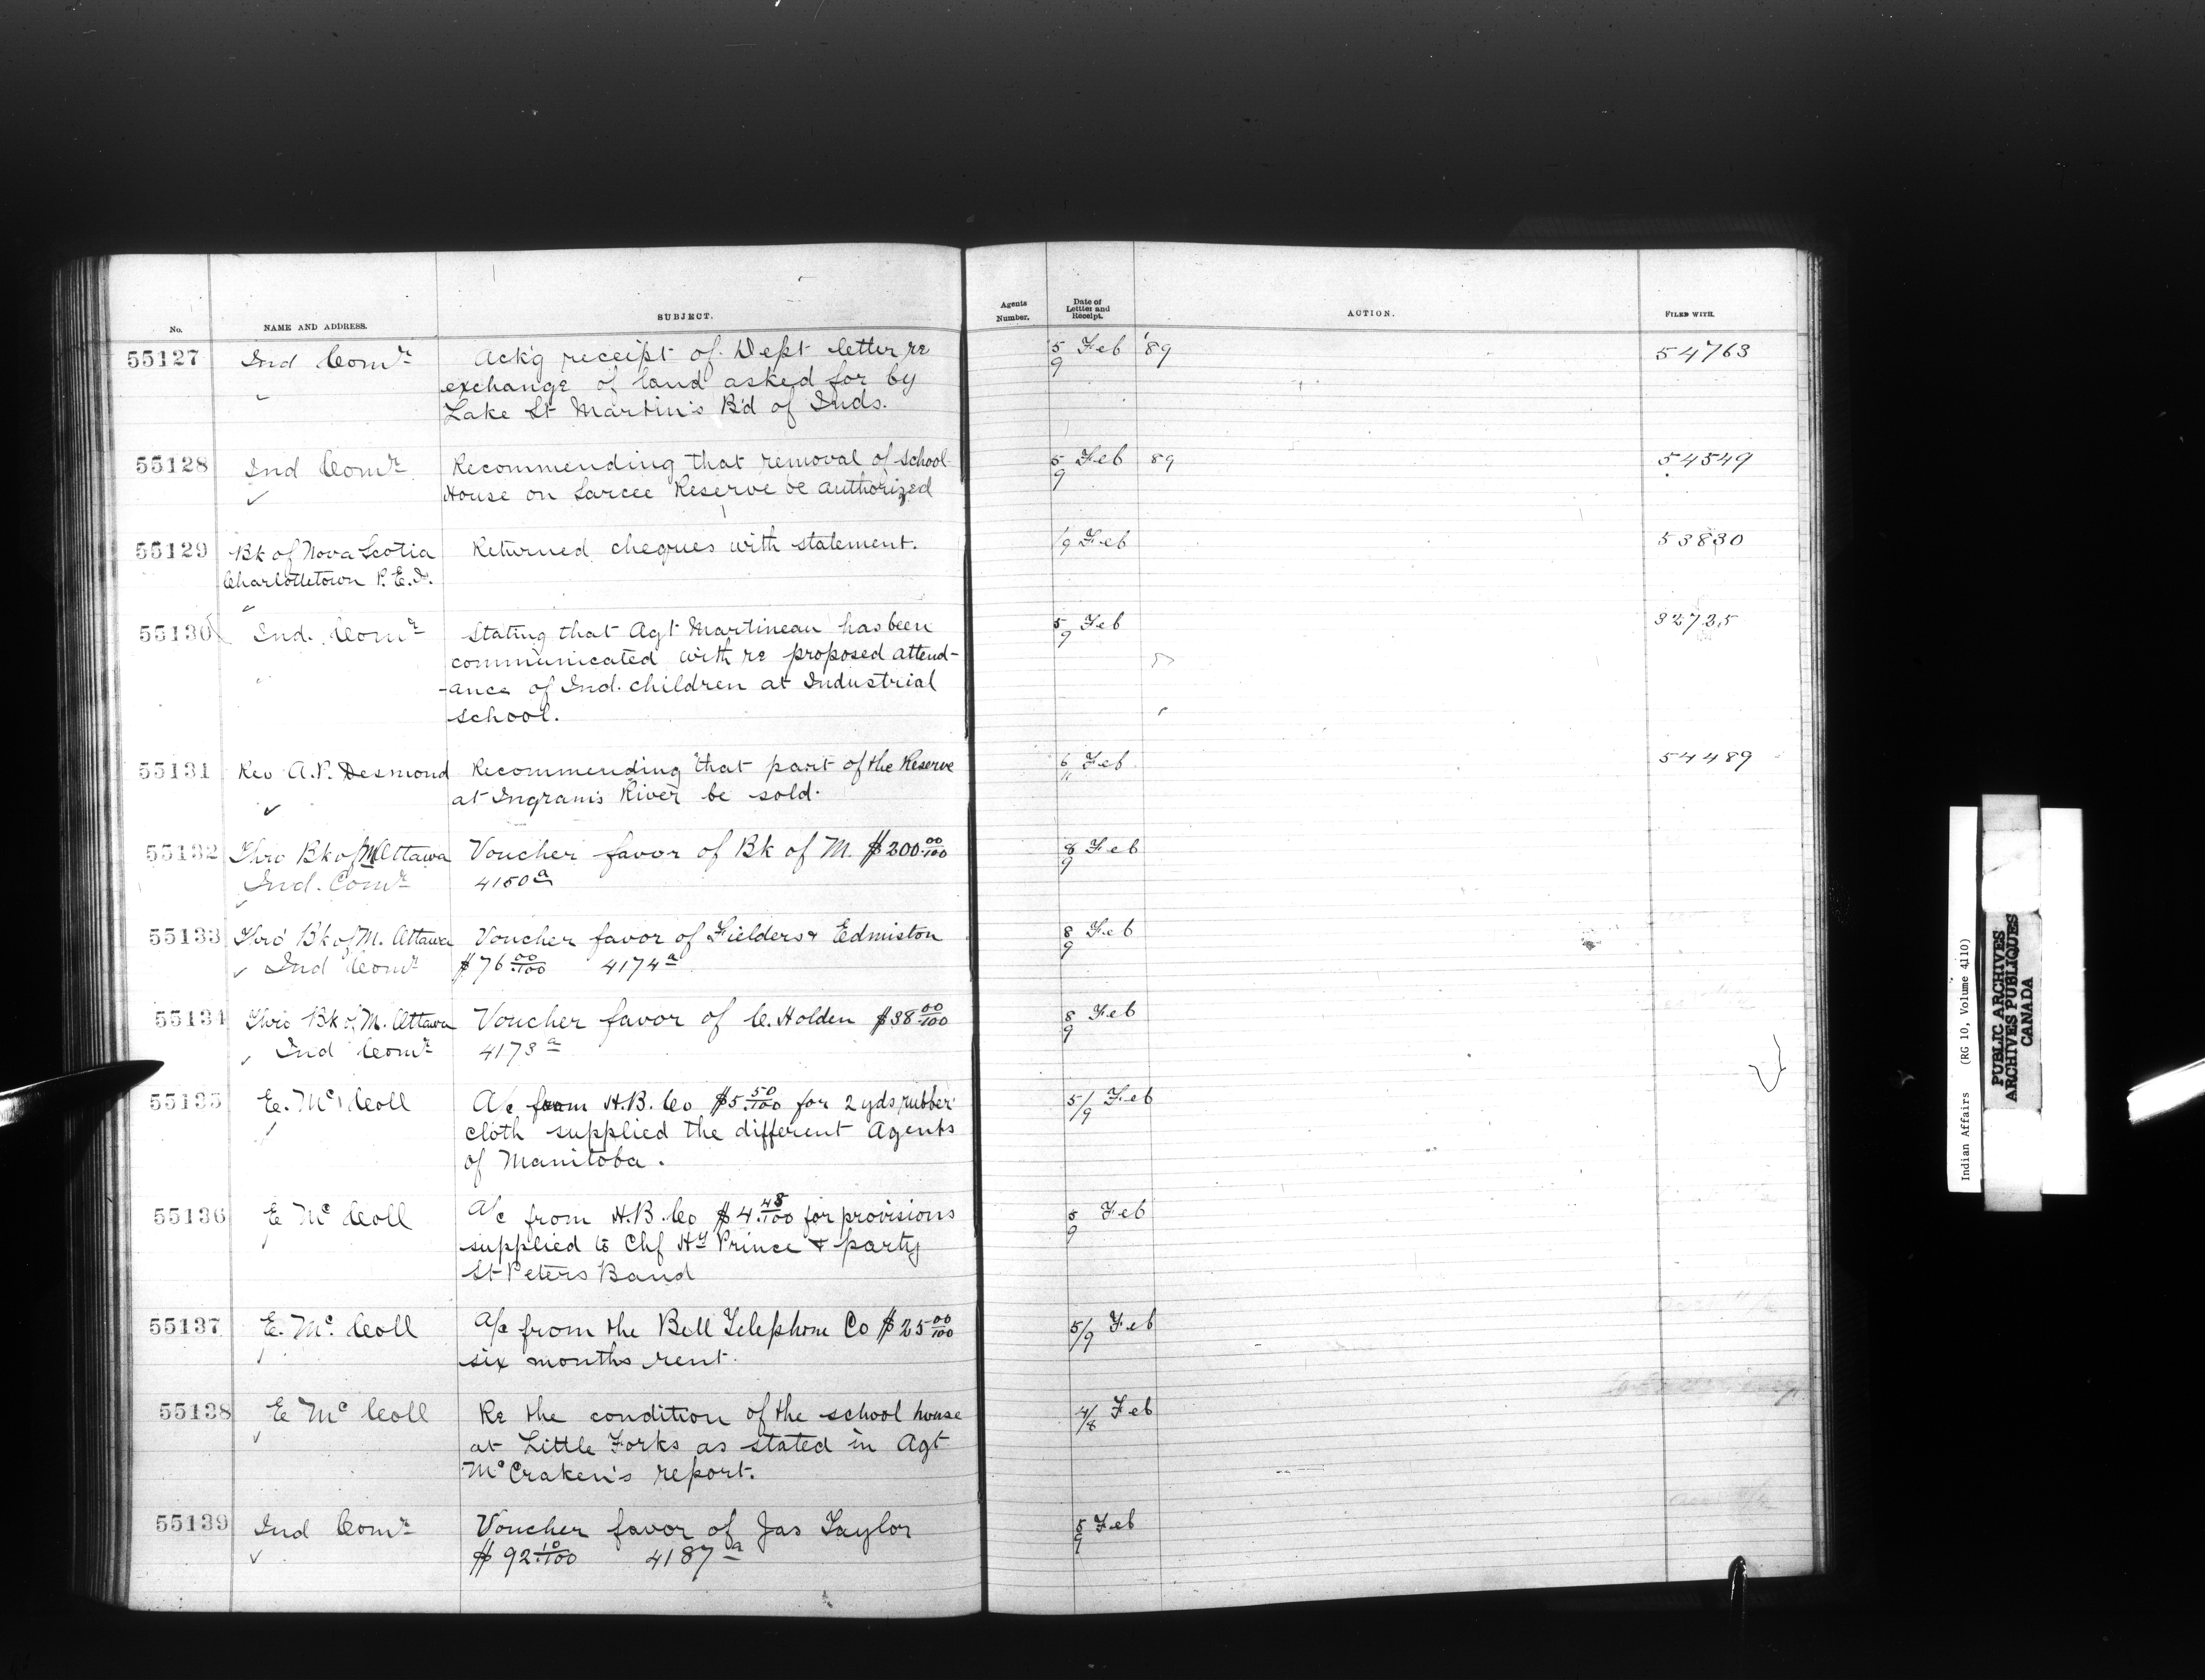 No. NAME AND ADDRESS. SUBJECT. Agents Number. Date of Letter and Receipt. ACTION. FILED WITH.
55127 Ind Comr Ack'g receipt of Dept letter re 5/9 Feb '89 54763
exchange of land asked for by
Lake St Martin's B'd of Inds.
55128 Ind Comr Recommending that removal of school 5/9 Feb 89 54549
House on Sarcee Reserve be authorized
55129 Bk of Nova Scotia Returned cheques with statement. 1/9 Feb 53830
Charlottetown P.E.I.
55130 Ind. Comr Stating that Agt Martineau has been 5/9 Feb 32725
communicated with re proposed attend-
-ance of Ind. children at Industrial
school.
55131 Rev A.P. Desmond Recommending that part of the Reserve 6/11 Feb 54489
at Ingram's River be sold.
55132 Thro Bk of M Ottawa Voucher favor of Bk of M. $200.00/100 8/9 Feb
Ind. Comr 4150a
55133 Thro' Bk of M. Ottawa Voucher favor of Fielders & Edmiston 8/9 Feb
Ind Comr $76.00/100 4174a
55134 Thro Bk of M. Ottawa Voucher favor of C. Holden $38.00/100 8/9 Feb
Ind Comr 4173a
55135 E. Mc Coll A/c from H.B. Co $5.50/100 for 2 yds rubber 5/9 Feb
cloth supplied the different Agents
of Manitoba.
55136 E Mc Coll A/c from H.B. Co $4.48/100 for provisions 5/9 Feb
supplied to Chf Hy Prince & party
St Peters Band
55137 E. Mc. Coll A/c from the Bell Telephone Co $25.00/100 5/9 Feb
six months rent.
55138 E Mc Coll Re the condition of the school house 4/8 Feb
at Little Forks as stated in Agt
McCraken's report.
55139 Ind Comr Voucher favor of Jas Taylor 5/9 Feb
$92.10/100 4187a
Indian Affairs (RG 10, Volume 4110)
PUBLIC ARCHIVES
ARCHIVES PUBLIQUES
CANADA